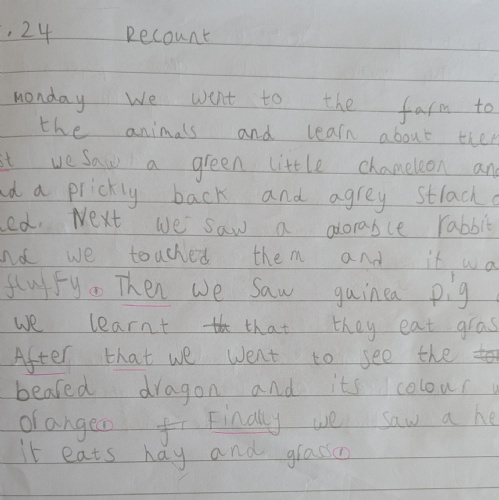 .24 Recount
monday we went to the farm to
the animals and learn about them
we saw a green little chameleon and
a prickly back and agrey
Next we saw a adorable rabbit
we touched them and it
fluffy. Then we saw guinea pig
we learnt that they eat
After that we went to see the
beared dragon and its colour
orange. Finally we saw a
it eats hay and grass.